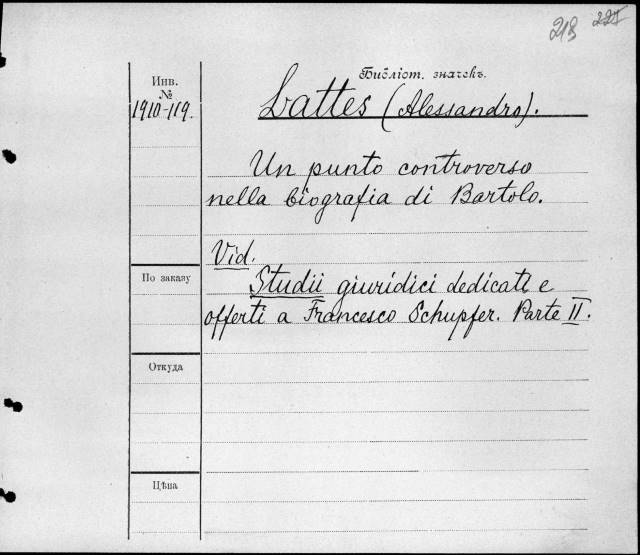 218 227
Библіот. значекъ.
Инв.
№
1910-119.
Lattes (Alessandro).
Un punto controverso
nella biografia di Bartolo.
Vid.
Studii giuridici dedicati e
offerti a Francesco Schupfer. Parte II.
По заказу
Откуда
Цѣна